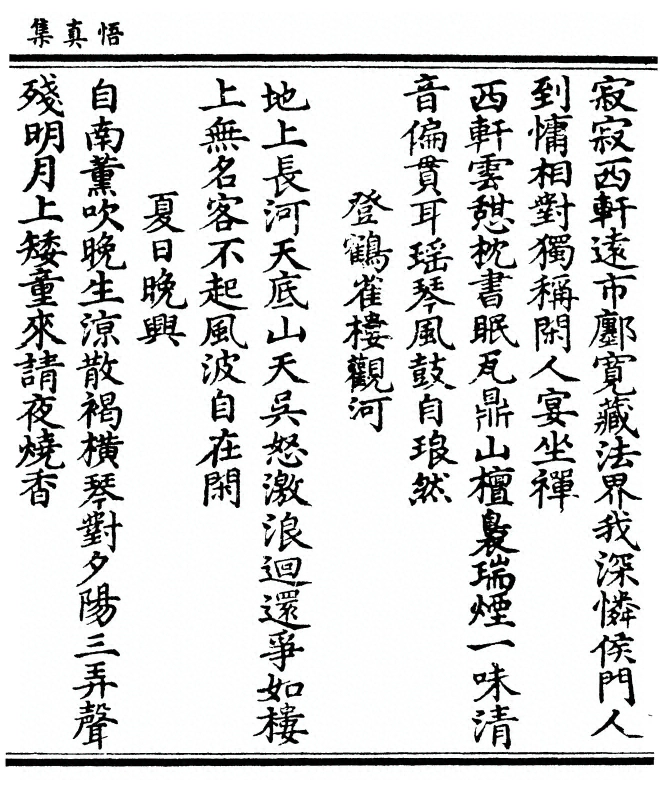 悟真集
寂寂西軒遠市鄽寛藏法界我深憐侯門人
到慵相對獨稱閑人宴坐禪
西軒雲憇枕書眠瓦鼎山檀裊瑞煙一味清
音偏貫耳瑶琴風鼓自琅然
登鶴雀樓觀河
地上長河天底山天吳怒激浪迴還爭如樓
上無名客不起風波自在閑
夏日晚興
自南薰吹晚生涼散褐橫琴對夕陽三弄聲
殘明月上矮童來請夜燒香